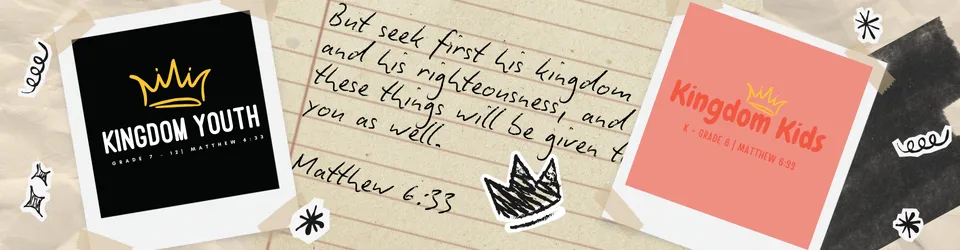 KINGDOM YOUTH
GRADE 7 - 12| MATTHEW 6:33
But seek first his kingdom
and his righteousness, and
these things will be given t
you as well.
Matthew 6:33
Kingdom Kids
K - GRADE 6 | MATTHEW 6:33